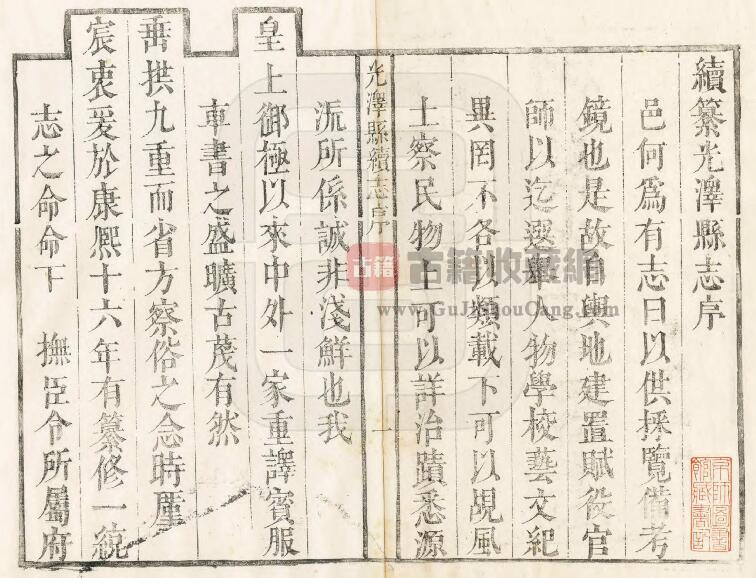 續纂光澤縣志序
邑何爲有志曰以供採覽備考
鏡也是故自輿地建置賦役官
師以迄選舉人物學校藝文紀
異罔不各以類載下可以覘風
土察民物上可以詳治蹟悉源
光澤縣續志序
一
流所係誠非淺鮮也我
皇上御極以來中外一家重譯賓服
車書之盛曠古茂有然
垂拱九重而省方察俗之念時厪
宸衷爰於康熙十六年有纂修一統
志之命命下 撫臣令所屬府
古籍 古籍收藏網
www.GuJiShouCang.com